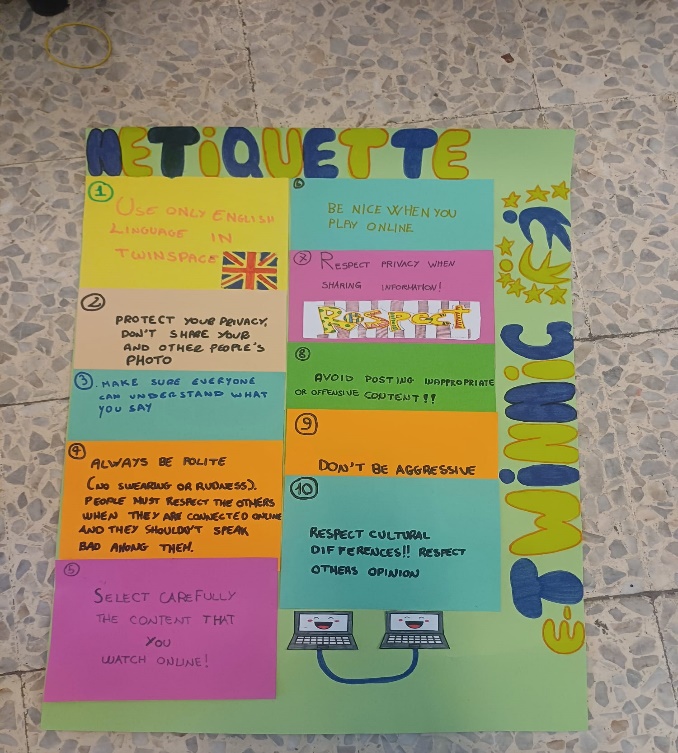 NETIQUETTE
1
USE ONLY ENGLISH
LINGUAGE IN
TWINSPACE
2
PROTECT YOUR PRIVACY,
DON'T SHARE YOUR
AND OTHER PEOPLE'S
PHOTO
3. MAKE SURE EVERYONE
CAN UNDERSTAND WHAT
YOU SAY
4
ALWAYS BE POLITE
(NO SWEARING OR RUDNESS).
PEOPLE MUST RESPECT THE OTHERS
WHEN THEY ARE CONNECTED ONLINE
AND THEY SHOULDN'T SPEAK
BAD AMONG THEM.
5
SELECT CAREFULLY
THE CONTENT THAT
YOU
WATCH ONLINE!
6
BE NICE WHEN YOU
PLAY ONLINE
7 RESPECT PRIVACY WHEN
SHARING INFORMATION!
RESPECT
8
AVOID POSTING INAPPROPRIATE
OR OFFENSIVE CONTENT!!
9
DON'T BE AGGRESSIVE
10
RESPECT CULTURAL
DIFFERENCES!! RESPECT
OTHERS OPINION
E-TWINNIG